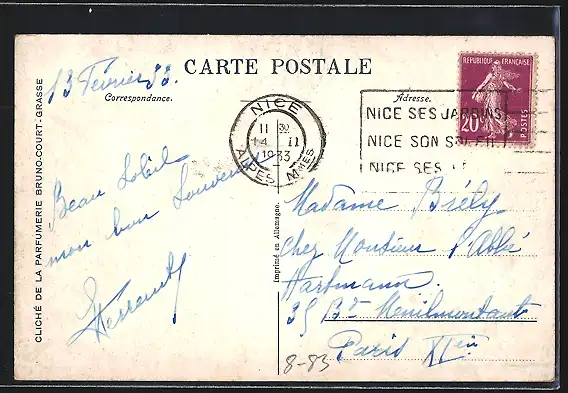 13 Février 33.
CARTE POSTALE
Correspondance.
Adresse.
RÉPUBLIQUE FRANÇAISE
20c
POSTES
NICE
11 30
14 II
1933
ALPES Mmes
NICE SES JARDINS
NICE SON SOLEIL
NICE SES
CLICHÉ DE LA PARFUMERIE BRUNO-COURT-GRASSE
Beau Soleil
mon bon Souvenir
Imprimé en Allemagne.
Madame Biély
Chez Monsieur l'Abbé
Hartmann.
35 Bd Menilmontant
Paris XIem
8-83